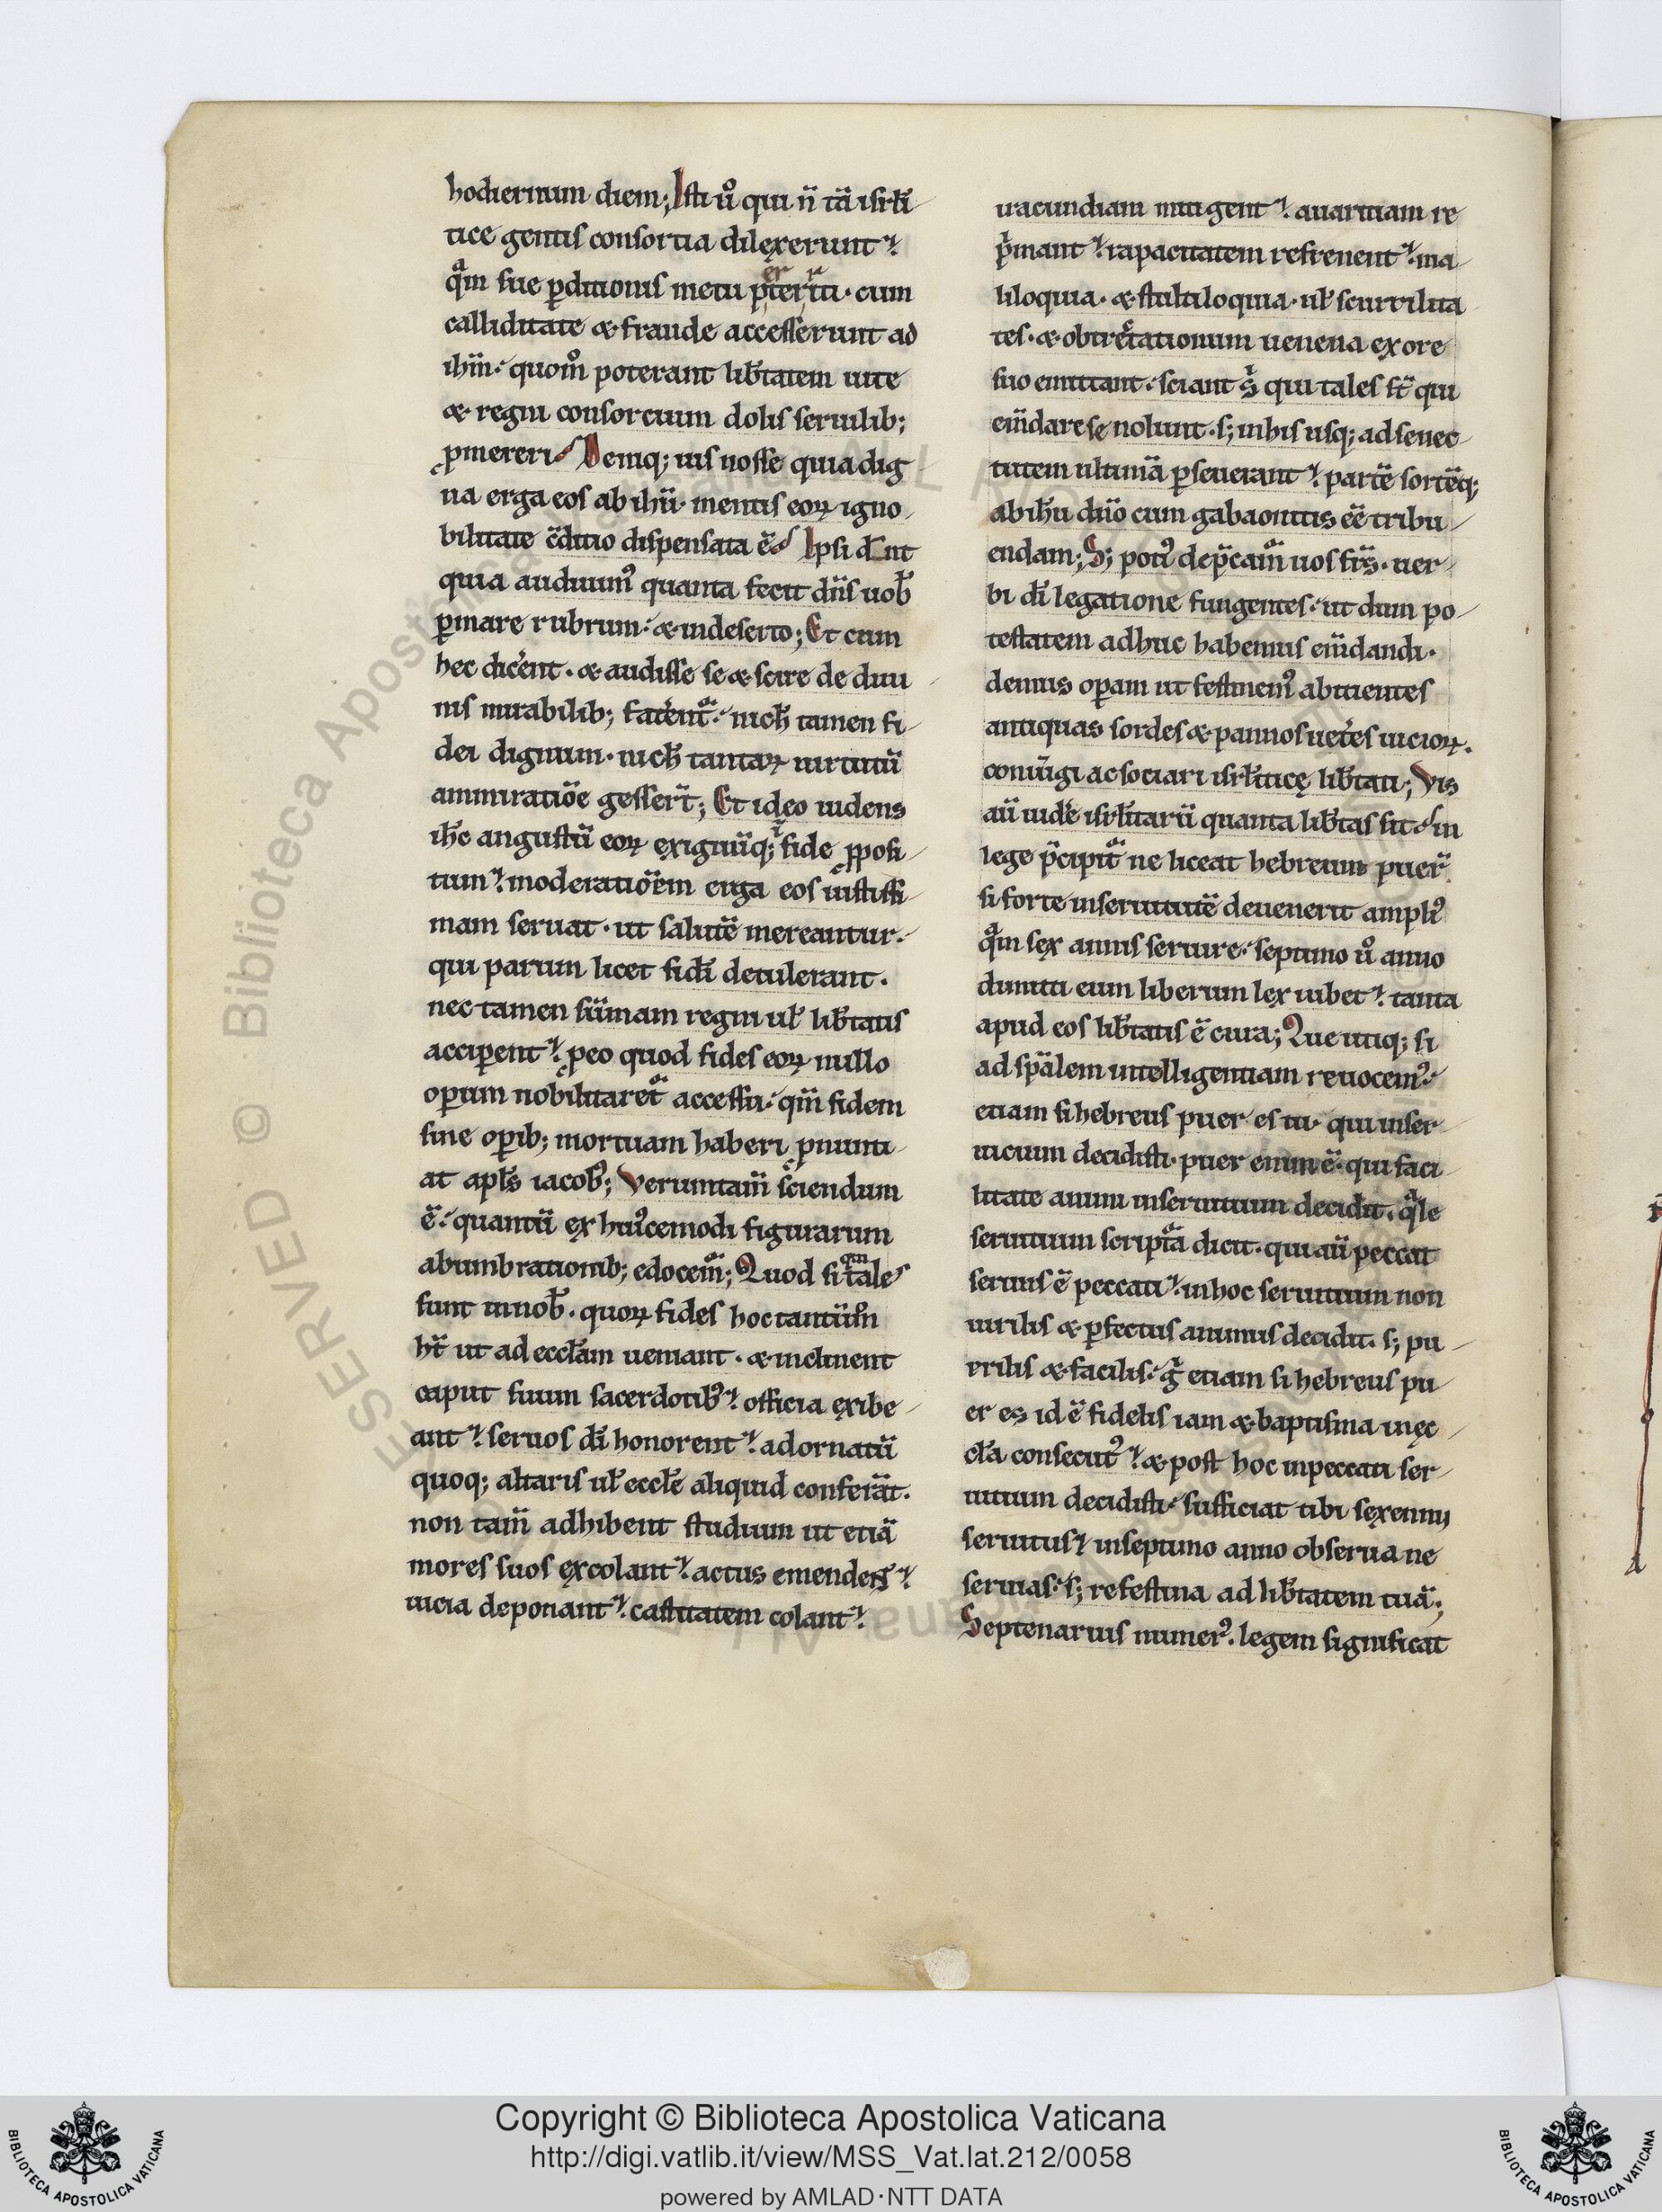 hodiernum diem; Isti ů qui n̄ tā isrł̄i
tice gentis consortia dilęxerunt
qͣm sue ꝑditionis metu ꝑterriti · cum
calliditate & fraude accesserunt ad
ihm̄ · quom̊ poterant lib̄tatem uite
& regni consorcium dolis seruilib;
ꝓmereri Deniq; uis nosse quia dig
na erga eos ab ihū · mentis eoꝝ igno
bilitate c̄ditio dispensata ē Ipsi dn̄t
quia audiuim᷒ quanta fecit dn̄s uob̄
ꝑ mare rubrum · & in deserto; Et cum
hec dic̄ent · & audisse se & scire de diui
nis mirabilib; faten̄t · nich̄ tamen fi
dei dignum · nich̄ tantaꝝ uirtutū
ammiratiōe gesser̄t; Et ideo uidens
ih̄c angustū eoꝝ exiguūq; fide ꝓposi
tum moderatiōem erga eos iustissi
mam seruat · ut salutē mereantur ·
qui parum licet fidei detulerant ·
nec tamen sūmam regni ul̄ lib̄tatis
acciꝑent ꝓ eo quod fides eoꝝ nullo
oꝑum nobilitaret᷑ accessu · qm̄ fidem
sine oꝑib; mortuam haberi ꝓnunti
at apl̄s iacob᷒; Veruntam̄ sciendum
ē · quantū ex hui᷒cemodi figurarum
abumbrationib; edocem᷑; Quod si qm̄ tales
sunt in uob̄ · quoꝝ fides hoc tantūm̊
h̄t ut ad eccl̄am ueniant · & inclinent
caput suum sacerdotib᷒ officia exibe
ant seruos dī honorent ad ornatū
quoq; altaris ul̄ eccl̄e aliquid conferāt ·
non tam̄ adhibent studium ut etiā
mores suos excolant actus emendent
uicia deponant castitatem colant
iracundiam mitigent auaritiam re
p̄mant rapacitatem refrenent ma
liloquia · & stultiloquia · ul̄ scurrilita
tes · & obtrectationum uenena ex ore
suo emittant · sciant s̄ qui tales st̄ qui
em̄dare se nolunt · s; in his usq; ad senec
tutem ultimā ꝑseuerant partē sortēq;
ab ih̄u dn̄o cum gabaonitis eē tribu
endam; S; poti᷒ dep̄cam᷑ uos fr̄s · uer
bi dī legatione fungentes · ut dum po
testatem adhuc habemus em̄dandi ·
demus oꝑam ut festinem᷒ abicientes
antiquas sordes & pannos uet̄es uicioꝝ ·
coniūgi ac sociari isrł̄iticę lib̄tati; Vis
aū uid̄e isrł̄itarū quanta lib̄tas sit in
lege p̄cipit᷑ ne liceat hebreum puer̄
si forte in seruitutē deuenerit ampli᷒
qͣm sex annis seruire · septimo ů anno
dimitti eum liberum lex iubet tanta
apud eos lib̄tatis ē cura; Que utiq; si
ad sp̄alem intelligentiam reuocem᷒
etiam si hebreus puer es tu · qui in ser
uicium decidisti · puer enim ē · qui faci
litate animi in seruitium decidit · qͣle
seruitium scriptͣa dicit · qui aū peccat
seruus ē peccati in hoc seruitium non
uirilis & ꝑfectus animus decidit · s; pu
erilis & facilis · ḡ etiam si hebreus pu
er es id ē fidelis iam & baptisma in ęc
cl̄a consecut᷒ & post hoc in peccati ser
uitium decidisti · sufficiat tibi sexennij
seruitus in septimo anno obserua ne
seruias · s; refestina ad lib̄tatem tuā;
Septenarius numer᷒ · legem significat
© Biblioteca Apostolica Vaticana ALL RIGHTS RESERVED
BIBLIOTECA APOSTOLICA VATICANA
Copyright © Biblioteca Apostolica Vaticana
http://digi.vatlib.it/view/MSS_Vat.lat.212/0058
powered by AMLAD·NTT DATA
BIBLIOTECA APOSTOLICA VATICANA